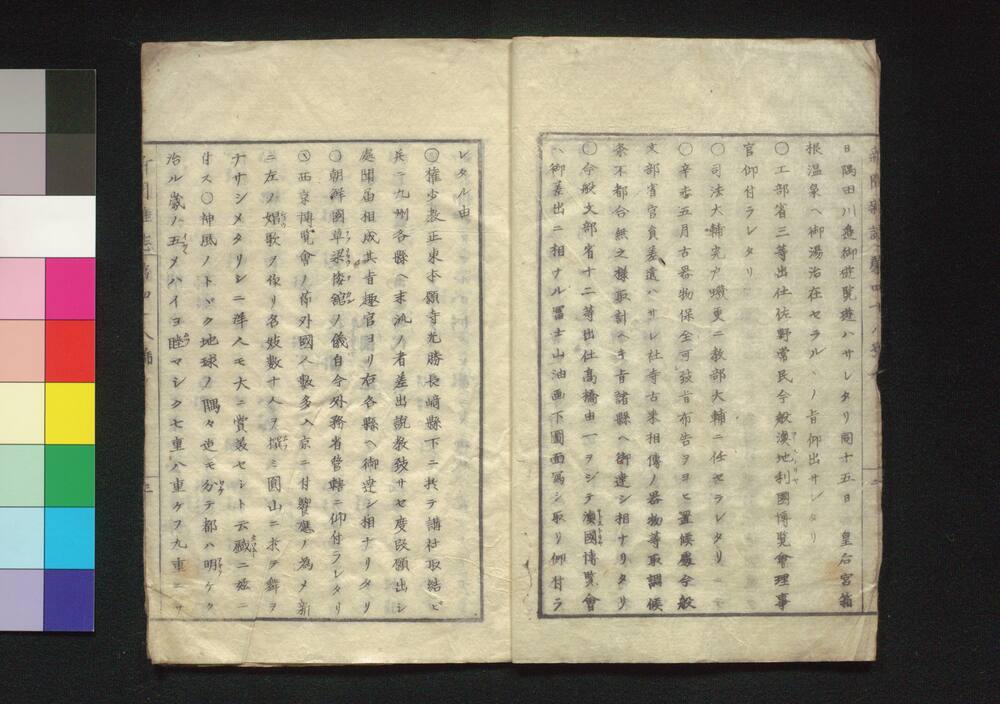 日隅田川邉御遊覧遊ハサレタリ同十五日 皇后宮箱
根温泉ヘ御湯治在セラルヽノ旨仰出サレタリ
〇工部省三等出仕佐野常民今般澳地利國博覧會理事
官仰付ラレタリ
〇司法大輔宍戸璣更ニ教部大輔ニ任セラレタリ
〇辛未五月古器物保全可致旨布告ヲヨビ置候處今般
文部省官員差遣ハサレ社寺古来相傳ノ器物等取調候
条不都合無之様取計ヘキ旨諸縣ヘ御達シ相ナリタリ
〇今般文部省十二等出仕高橋由一ヲシテ澳國博覧會
ヘ御差出ニ相ナル冨士山油画下圖面冩シ取リ仰付ラ
レタル由
〇權少教正東本願寺光勝長嵜縣下ニ於テ講社取結ビ
兵ニ九州各縣ヘ末派ノ者差出説教致サセ度段願出シ
處聞届相成其旨趣官ヨリ右各縣ヘ御達シ相ナリタリ
〇朝鮮國草梁倭舘ノ儀自今外務省管轄ニ仰付ラレタリ
〇西京博覧會ノ節外國人数多入京ニ付饗應ノ為メ新
ニ左ノ唱歌ヲ作リ名妓数十人ヲ撰ミ圓山ニ於テ舞ヲ
ナサシメタリシニ洋人モ大ニ賞美セシト云臓ニ茲ニ
付ス〇神風ノトヾク地球ノ隅々迄モ分テ都ハ明ケク
治ル歳ノ五メハイヨ睦マシク七重八重ケフ九重ニサ